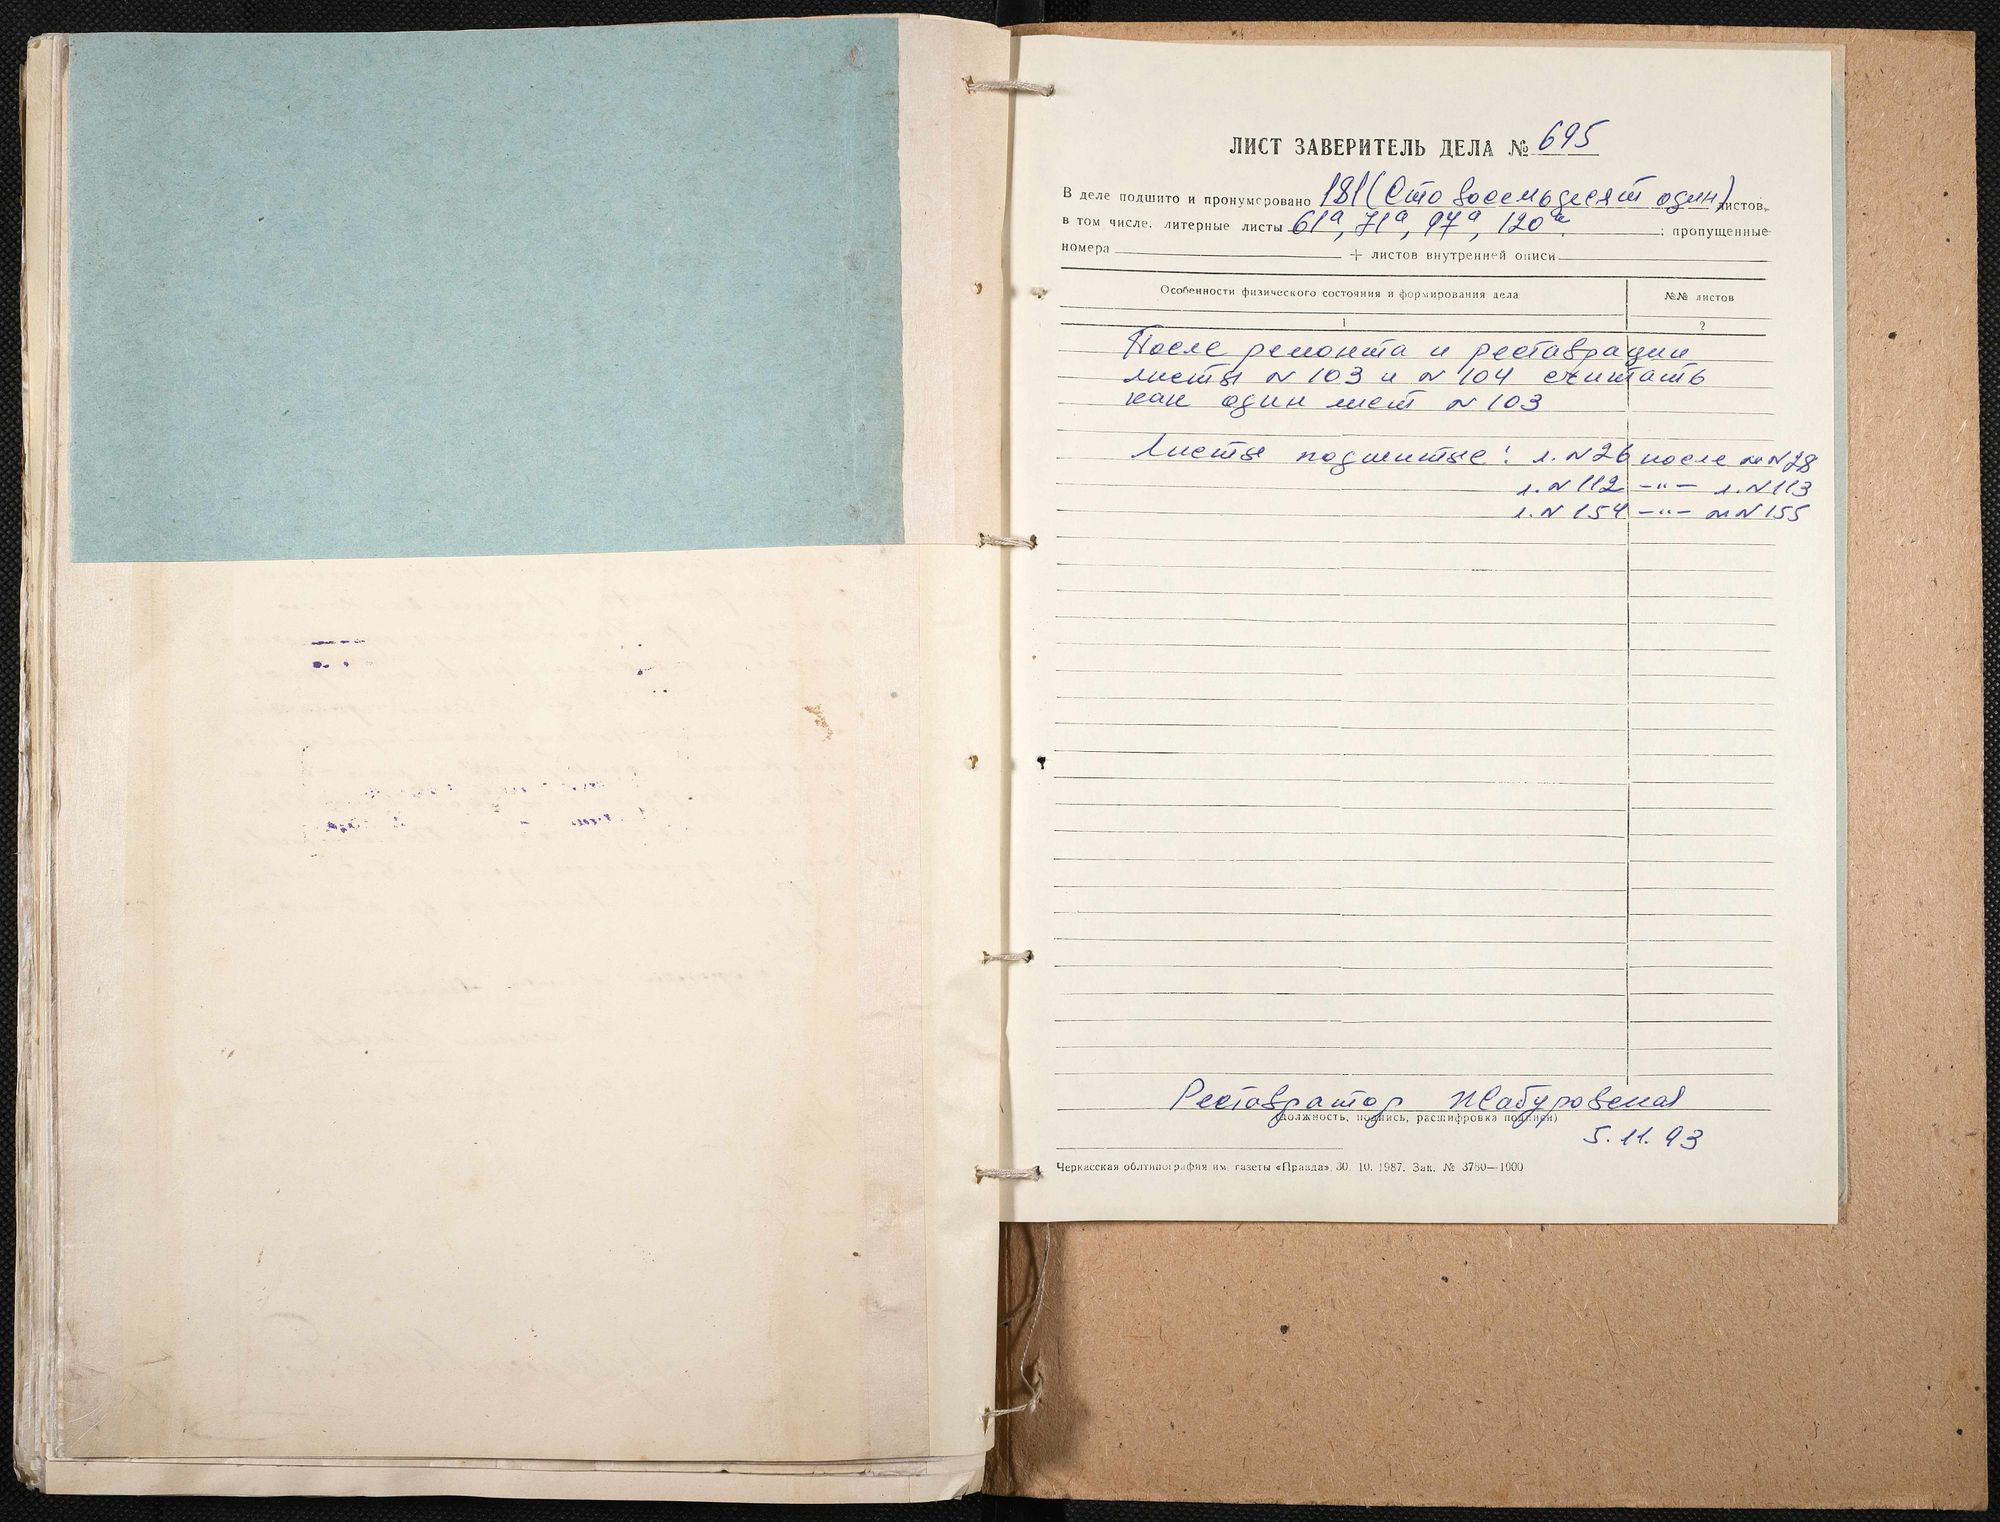 ЛИСТ ЗАВЕРИТЕЛЬ ДЕЛА № 695
В деле подшито и пронумеровано 181 (Сто восемьдесят один) листов,
в том числе: литерные листы 61а, 71а, 97а, 120а ; пропущенные
номера + листов внутренней описи
Особенности физического состояния и формирования дела №№ листов
1 2
После ремонта и реставрации
листы № 103 и № 104 считать
как один лист № 103
Листы подшитые: л. № 26 после л. № 28
л. № 112 –"– л. № 113
л. № 154 –"– л. № 155
Реставратор Жабуровская
(должность, подпись, расшифровка подписи)
5.11.93
Черкасская облтипография им. газеты «Правда», 30. 10. 1987. Зак. № 3780—1000